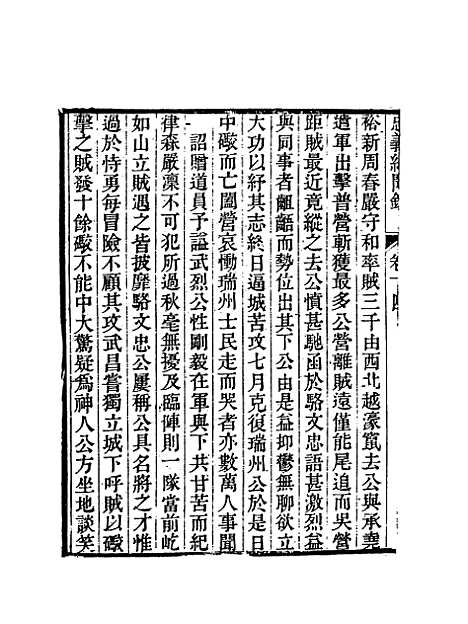 忠義紀聞錄 卷十四
裕新周春嚴守和率賊三千由西北越濠竄去公與承堯
遒軍出擊普營斬獲最多公營離賊遠僅能尾追而吳營
距賊最近竟縱之去公憤甚馳函於駱文忠語甚激烈益
與同事者齟齬而勢位出其下公由是益抑鬱無聊欲立
大功以紓其志終日逼城苦攻七月克復瑞州公於是日
中礮而亡闔營哀慟瑞州士民走而哭者亦數萬人事聞
詔贈道員予諡武烈公性剛毅在軍與下共甘苦而紀
律森嚴凜不可犯所過秋毫無擾及臨陣則一隊當前屹
如山立賊遇之皆披靡駱文忠公屢稱公具名將之才惟
過於恃勇每冒險不顧其攻武昌嘗獨立城下呼賊以礮
擊之賊發十餘礮不能中大驚疑爲神人公方坐地談笑